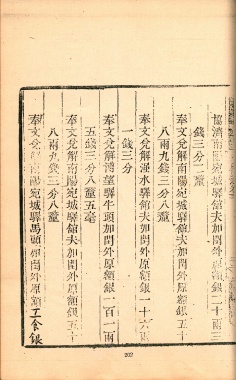 協濟南陽宛城驛館夫加閏外原額銀二十兩三
錢三分二釐
奉文兌解南陽宛城驛館夫加閏外原額銀五十
八兩九錢三分八釐
奉文兌解㵐水驛館夫加閏外原額銀一十六兩
一錢三分
奉文兌解博望驛牛頭加閏外原額銀二百一兩
五錢三分八釐五毫
奉文兌解南陽宛城驛館夫加閏外原額銀五十
八兩三分八釐
奉文兌解南陽宛城驛馬頭加閏外原額工食銀
202